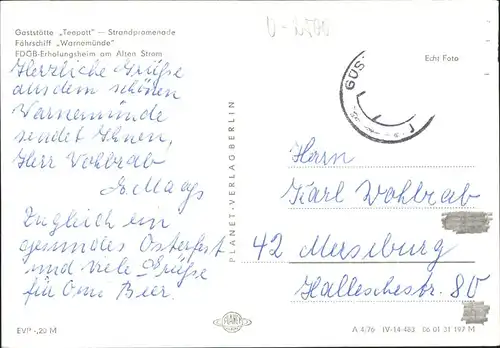 Gaststätte „Teepott" — Strandpromenade
Fährschiff „Warnemünde"
FDGB-Erholungsheim am Alten Strom
Echt Foto
Herzliche Grüße
aus dem schönen
Warnemünde
sendet Ihnen,
Herr Wohlrab
E. Maaß
Zugleich ein
gesundes Osterfest
und viele Grüße
für Omi Bier.
PLANET-VERLAG BERLIN
GÜS
Herrn
Karl Wohlrab
42 Merseburg
Hallesche str. 80
EVP -,20 M
PLANET
A 4/76 IV-14-483 06 01 31 197 M